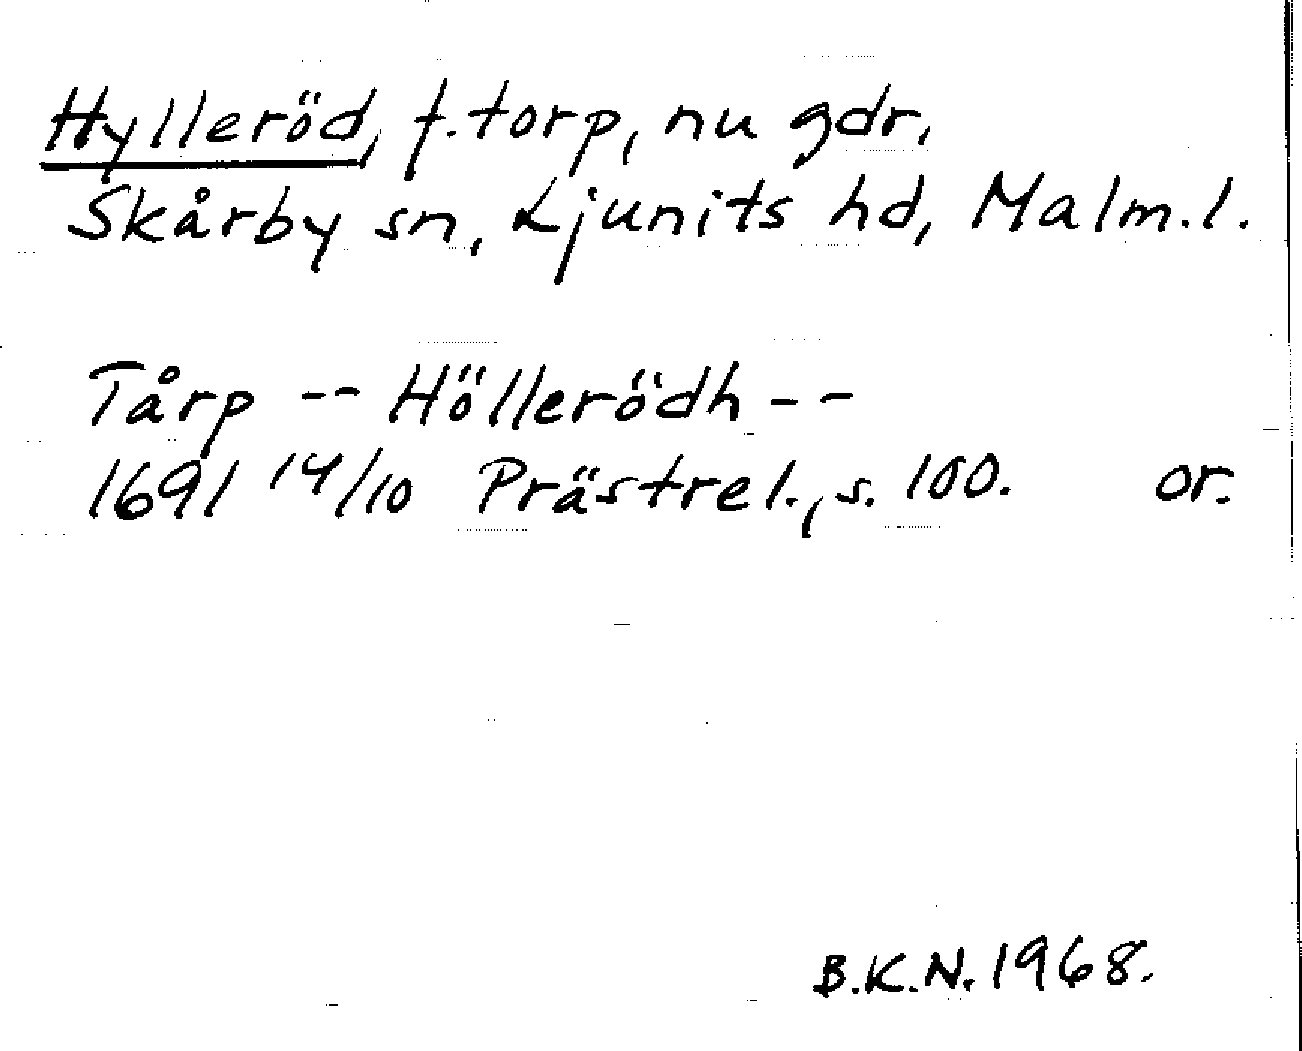 Hylleröd, f.torp, nu gdr,
Skårby sn, Ljunits hd, Malm.l.
Tårp -- Höllerödh --
1691 14/10 Prästrel., s. 100. or.
B.K.N. 1968.